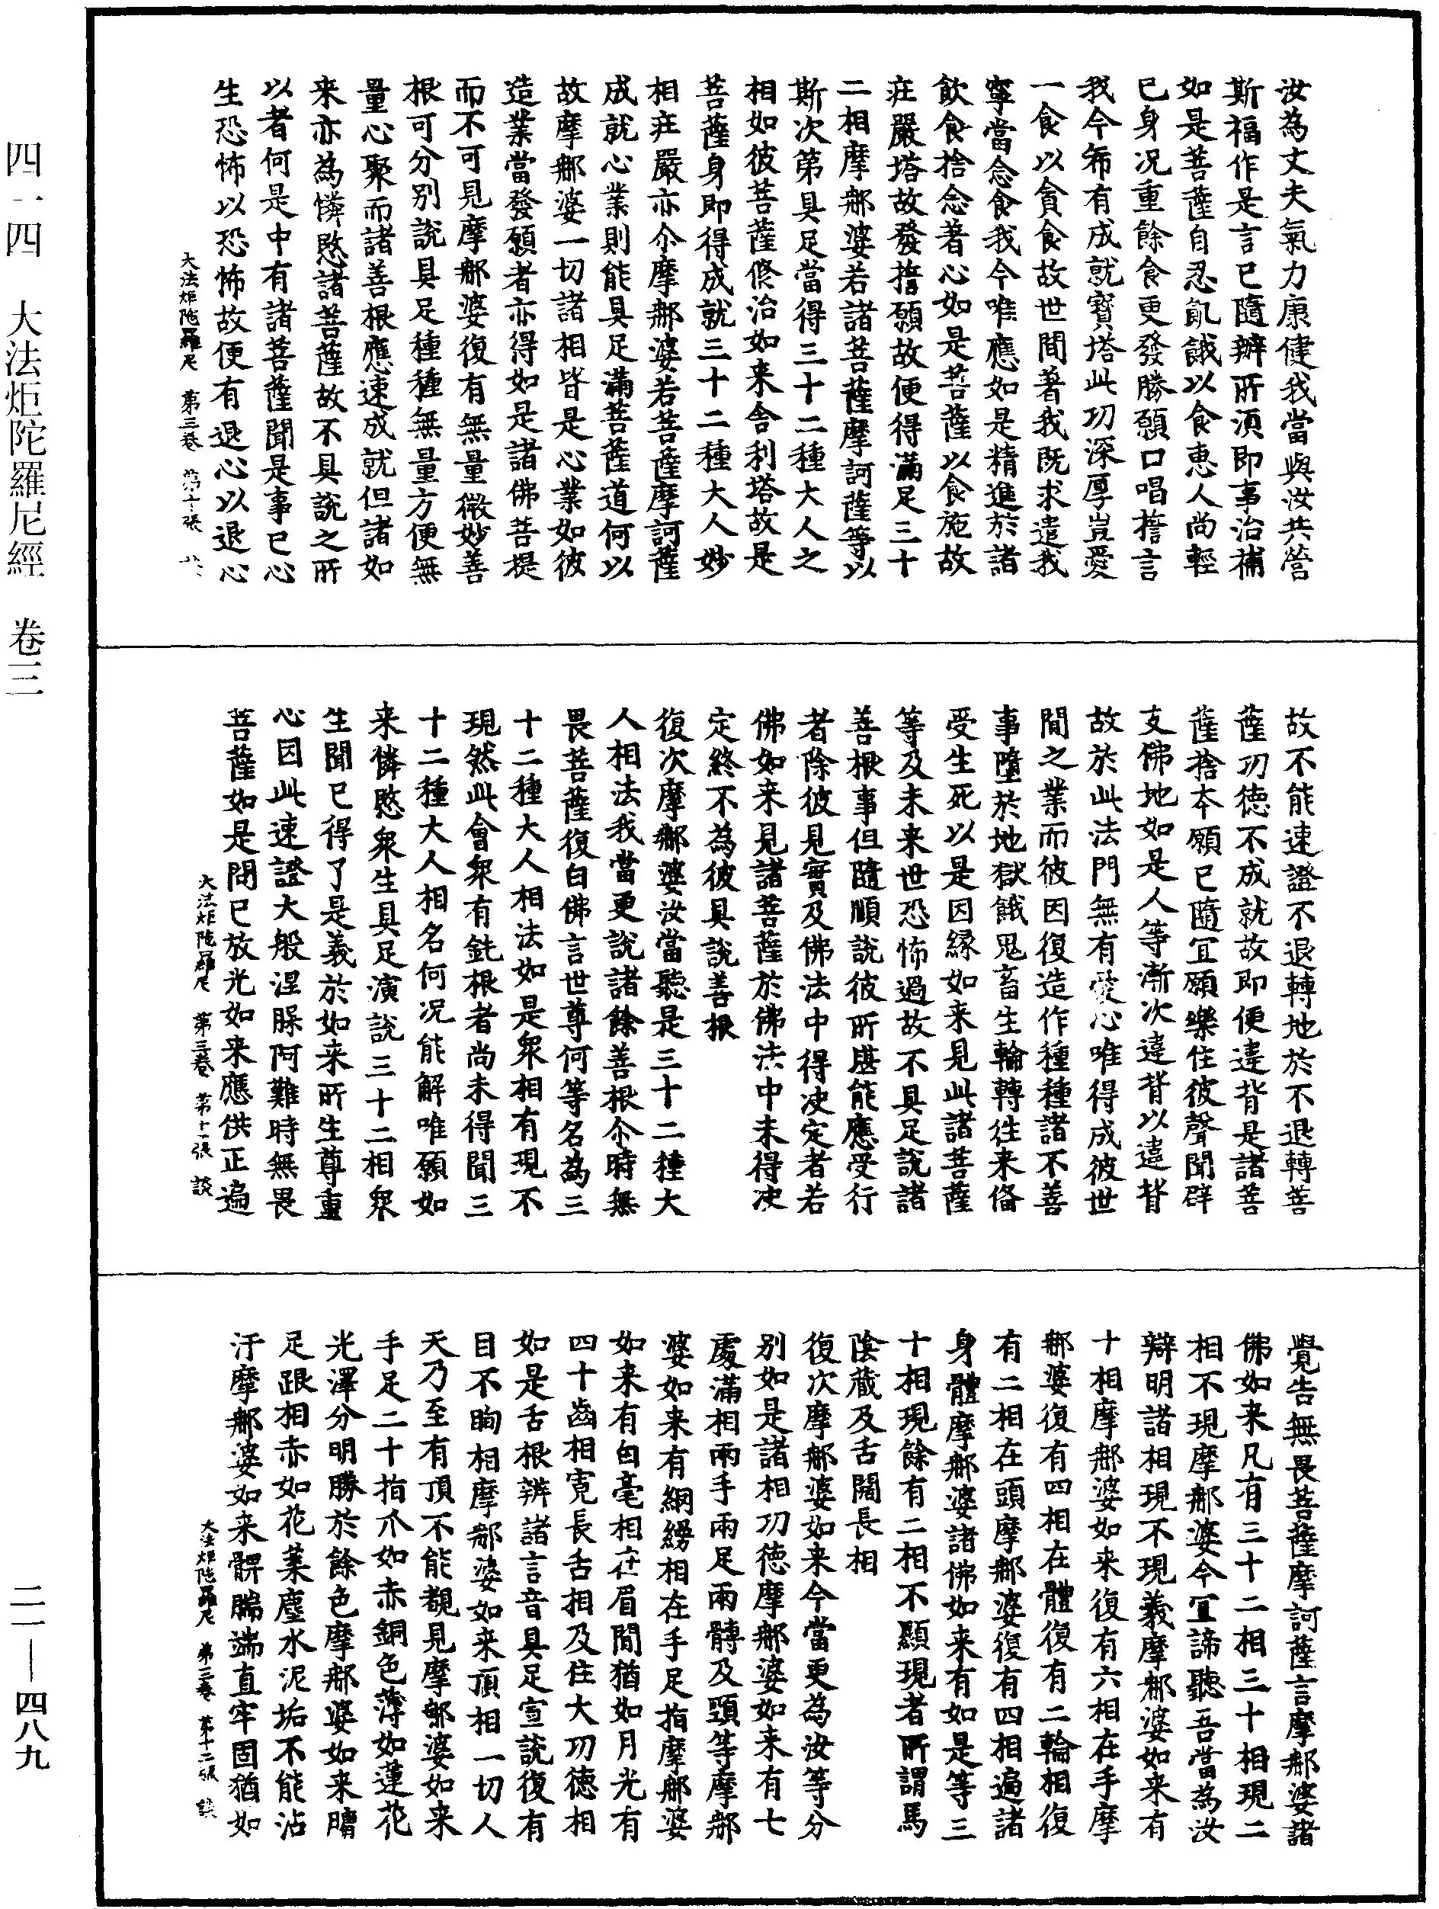 汝為丈夫氣力康健我當與汝共營
斯福作是言已隨辦所須即事治補
如是菩薩自忍飢餓以食惠人尚輕
已身況重餘食更發勝願口唱誓言
我今希有成就寶塔此功深厚豈愛
一食以貪食故世間著我我既求遣我
寧當念食我今唯應如是精進於諸
飲食捨念著心如是菩薩以食施故
莊嚴塔故發誓願故便得滿足三十
二相摩那婆若諸菩薩摩訶薩等以
斯次第具足當得三十二種大人之
相如彼菩薩修治如来舍利塔故是
菩薩身即得成就三十二種大人妙
相莊嚴亦尒摩那婆若菩薩摩訶薩
成就心業則能具足滿菩薩道何以
故摩那婆一切諸相皆是心業如彼
造業當發願者亦得如是諸佛菩提
而不可見摩那婆復有無量微妙善
根可分別說具足種種無量方便無
量心聚而諸善根應速成就但諸如
来亦為憐愍諸菩薩故不具說之所
以者何是中有諸菩薩聞是事已心
生恐怖以恐怖故便有退心以退心
大法炬陀羅尼 第三卷 第十張
故不能速證不退轉地於不退轉菩
薩功德不成就故即便違背是諸菩
薩捨本願已隨宜願樂住彼聲聞辟
支佛地如是人等漸次違背以違背
故於此法門無有愛心唯得成彼世
間之業而彼因復造作種種諸不善
事墮於地獄餓鬼畜生輪轉往来俻
受生死以是因縁如来見此諸菩薩
等及未来世恐怖過故不具足說諸
善根事但隨順說彼所堪能應受行
者除彼見實及佛法中得決定者若
佛如来見諸菩薩於佛法中未得決
定終不為彼具說善根
復次摩那婆汝當聽是三十二種大
人相法我當更說諸餘善根尒時無
畏菩薩復白佛言世尊何等名為三
十二種大人相法如是眾相有現不
現然此會眾有鈍根者尚未得聞三
十二種大人相名何況能解唯願如
来憐愍眾生具足演說三十二相眾
生聞已得了是義於如来所生尊重
心因此速證大般涅槃阿難時無畏
菩薩如是問已放光如来應供正遍
大法炬陀羅尼 第三卷 第十一張 談
覺告無畏菩薩摩訶薩言摩那婆諸
佛如来凡有三十二相三十相現二
相不現摩那婆今宜諦聽吾當為汝
辯明諸相現不現義摩那婆如来有
十相摩那婆如来復有六相在手摩
那婆復有四相在體復有二輪相復
有二相在頭摩那婆復有四相遍諸
身體摩那婆諸佛如来有如是等三
十相現餘有二相不顯現者所謂馬
陰藏及舌闊長相
復次摩那婆如来今當更為汝等分
別如是諸相功德摩那婆如来有七
處滿相兩手兩足兩髆及頸等摩那
婆如来有網縵相在手足指摩那婆
如来有白毫相在眉間猶如月光有
四十齒相寬長舌相及住大功德相
如是舌根辨諸言音具足宣說復有
目不眴相摩那婆如来頂相一切人
天乃至有頂不能覩見摩那婆如来
手足二十指爪如赤銅色薄如蓮花
光澤分明勝於餘色摩那婆如来𦟛
足跟相赤如花葉塵水泥垢不能沾
汙摩那婆如来髀腨端直牢固猶如
大法炬陀羅尼 第三卷 第十二張 談
四一四 大法炬陀羅尼經 卷三
二一—四八九